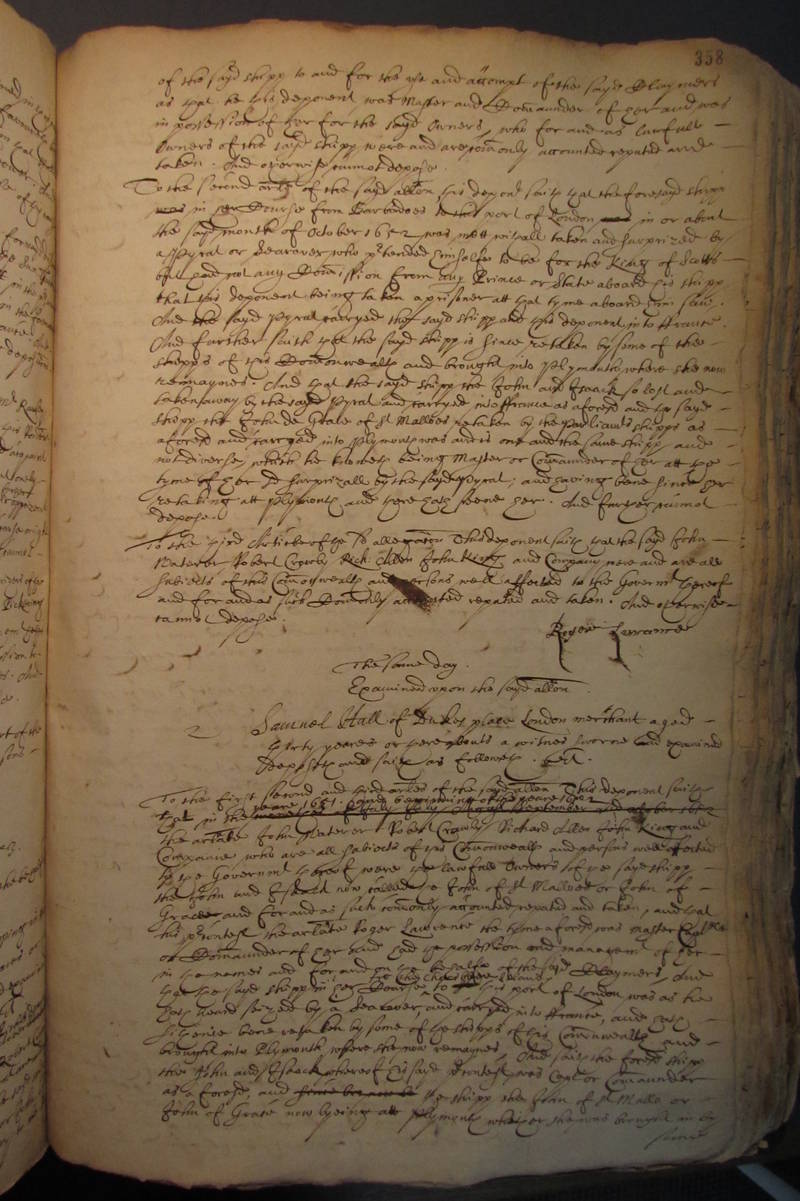 358
of the sayd shipp to and for the use and accompt of the sayd Claymers
as that he this deponent was Master and Comaunder of her and was
in possession of her for the sayd Owners, who for and as lawfull
Owners of the sayd shipp were and are comonly accounted reputed and
taken. And otherwise cannot depose.
To the second arle of the sayd allon this depont saith that the foresayd shipp
was in her Course from Barbadoes to this port of London in or about
the sayd month of October 1652 was mett withall taken and surprized by
a Pyrat or Searover who ptended himselfe to be for the King of Scotts
but had not any Comission from any Prince or State aboard his shipp
that this deponent being taken a prisoner att that tyme aboard him saw.
And the sayd Pyrat carryed the sayd shipp and this deponent into ffrance.
And further saith that the sayd shipp is since retaken by some of the
shipps of this Comonwealth and brought into Plymouth, where she now
remaynes. And that the sayd shipp the John and Isaack so lost and
taken away by the sayd Pyrat and carryed into ffrance as aforesd and the sayd
shipp the John de Grace of St Malloes retaken by the Parliamts shipps as
aforesd and carryed into Plymouth was and is one and the same shipp and
not divers, which he knoweth being Master or Comaunder of her att the
tyme of her surprizall by the sayd Pyrat; and having bene since her
retaking att Plymouth and there hath seene her. And further cannot
depose.
To the third Article of the sd allegation This deponent saith that the sayd John
Waterer Robert Crowby Rich: Allen John King and Company were and are all
subiects of this Comonwealth and persons well affected to the Governmt thereof
and for and as such Comonly accounted reputed and taken. And otherwise
cannot depose.
Roger Lurrance
The same day.
Examined upon the sayd allon.
2 Samuel Hall of Dukes place London merchant aged
thirty yeares or thereabouts a witnes sworne and examined
deposeth and saith as followeth. vizt.
To the first second and third arles of the sayd allon This deponent saith
that in the yeare 1651
the arlate John Waterer Robert Crowby Richard Allen John King and
Companie who are all subiects of this Comonwealth and persons well affected
to the Governmt thereof were the lawfull Owners of the sayd shipp
the John and Isaack now called the John of St Malloes or John of
Grace and for and as such comonly accounted, reputed and taken, and that
his the arlate Roger Lawrence the tyme aforesd was master
or Comaunder of her and had the possession and managemt of her
in the names and for and on the behalfe of the sayd Claymers, And
that the sayd shipp in her Course to this port of London was as he
hath heard seized by a Searover and carryed into ffrance, and hath
since bene retaken by some of the shipps of this Comonwealth and
brought into Plymouth where she now remaynes, And saith the foresd shipp
the John and Isaack whereof his sayd was Capt or Comaunder
as aforesd, and the shipp the John of St Mallo or
John of Grace now lyeing att Plymouth whither she was brought in by
some